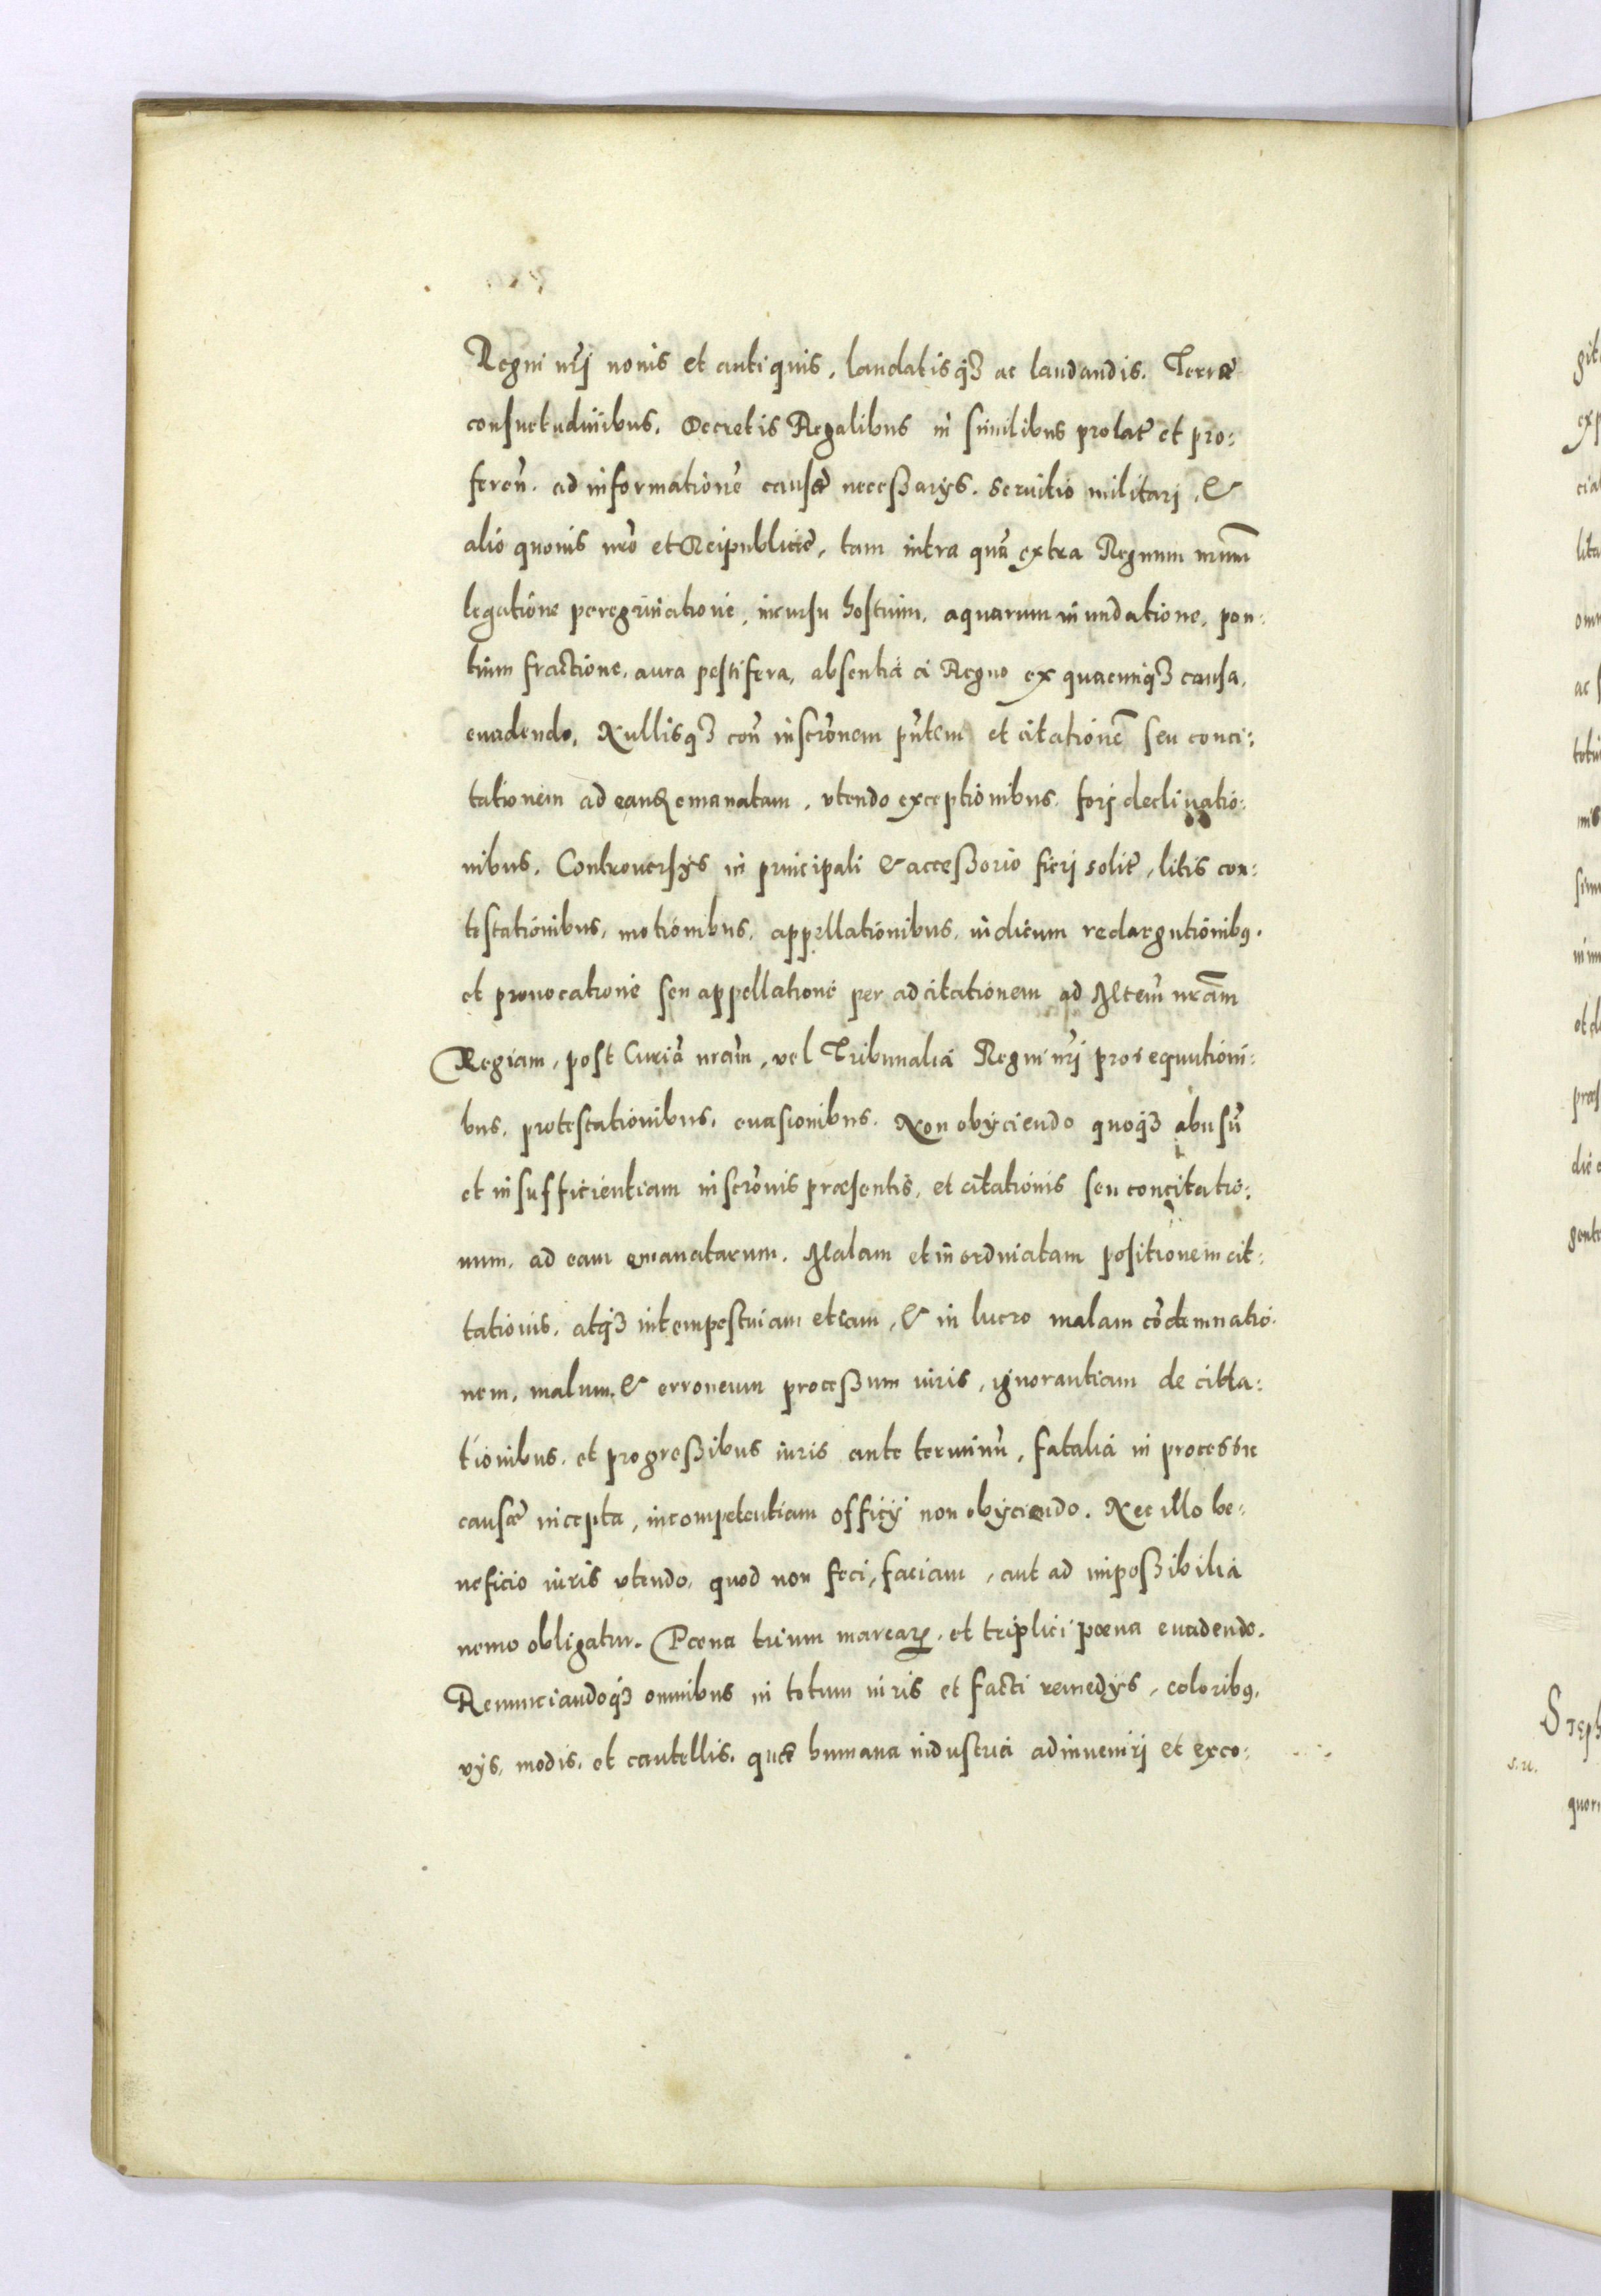 Regni nrj nouis et antiquis, laudatisqʒ ac laudandis. Terræ
consuetudinibus. Decretis Regalibus in similibus prolat̃ et pro:
feren̄. ad informationē causæ necessarÿs. seruitio militarj, &
alio quouis nrō et Reipublicæ, tam intra quā extra Regnum nrūm
legatione peregrinatione, incursu hostium, aquarum inundatione, pon:
tium fractione, aura pestifera, absentia à Regno ex quacunqʒ causa,
euadendo, Nullisqʒ con̄ inscrōnem pn̄tem et citationē seu conci:
tationem ad eandꝫ emanatam, vtendo exceptionibus, forj declinatio:
nibus, Controuersÿs in principali & accessorio fierj solit̃, litis con:
testationibus, motionibus, appellationibus, iudicum redargutionibꝯ.
et prouocatione seu appellatione per adcitationem ad Mtem̄ nrām
Regiam, post Curiā nrām, vel Tribunalia Regni nrj prosequutioni:
bus, protestationibus, euasionibus. Non obÿciendo quoqʒ abusū
et insufficientiam inscrōnis præsentis, et citationis seu concitatio:
num, ad eam emanatarum. Malam et inordinatam positionem cit:
tationis, atqʒ intempestiuam etiam, & in lucro malam cōdemnatio:
nem, malum & erroneum processum iuris, ignorantiam de citta:
tionibus, et progressibus iuris ante terminū, fatalia in processu
causæ incepta, incompetentiam officÿ non obÿciendo. Nec illo be:
neficio iuris vtendo, quod non feci, faciam, aut ad impossibilia
nemo obligatur. Pœna trium marcaꝝ, et triplici pœna euadendo.
Renunciandoqʒ omnibus in totum iuris et facti remedÿs, coloribꝯ,
vÿs, modis, et cautellis, quæ humana industria adinuenirj et exco: